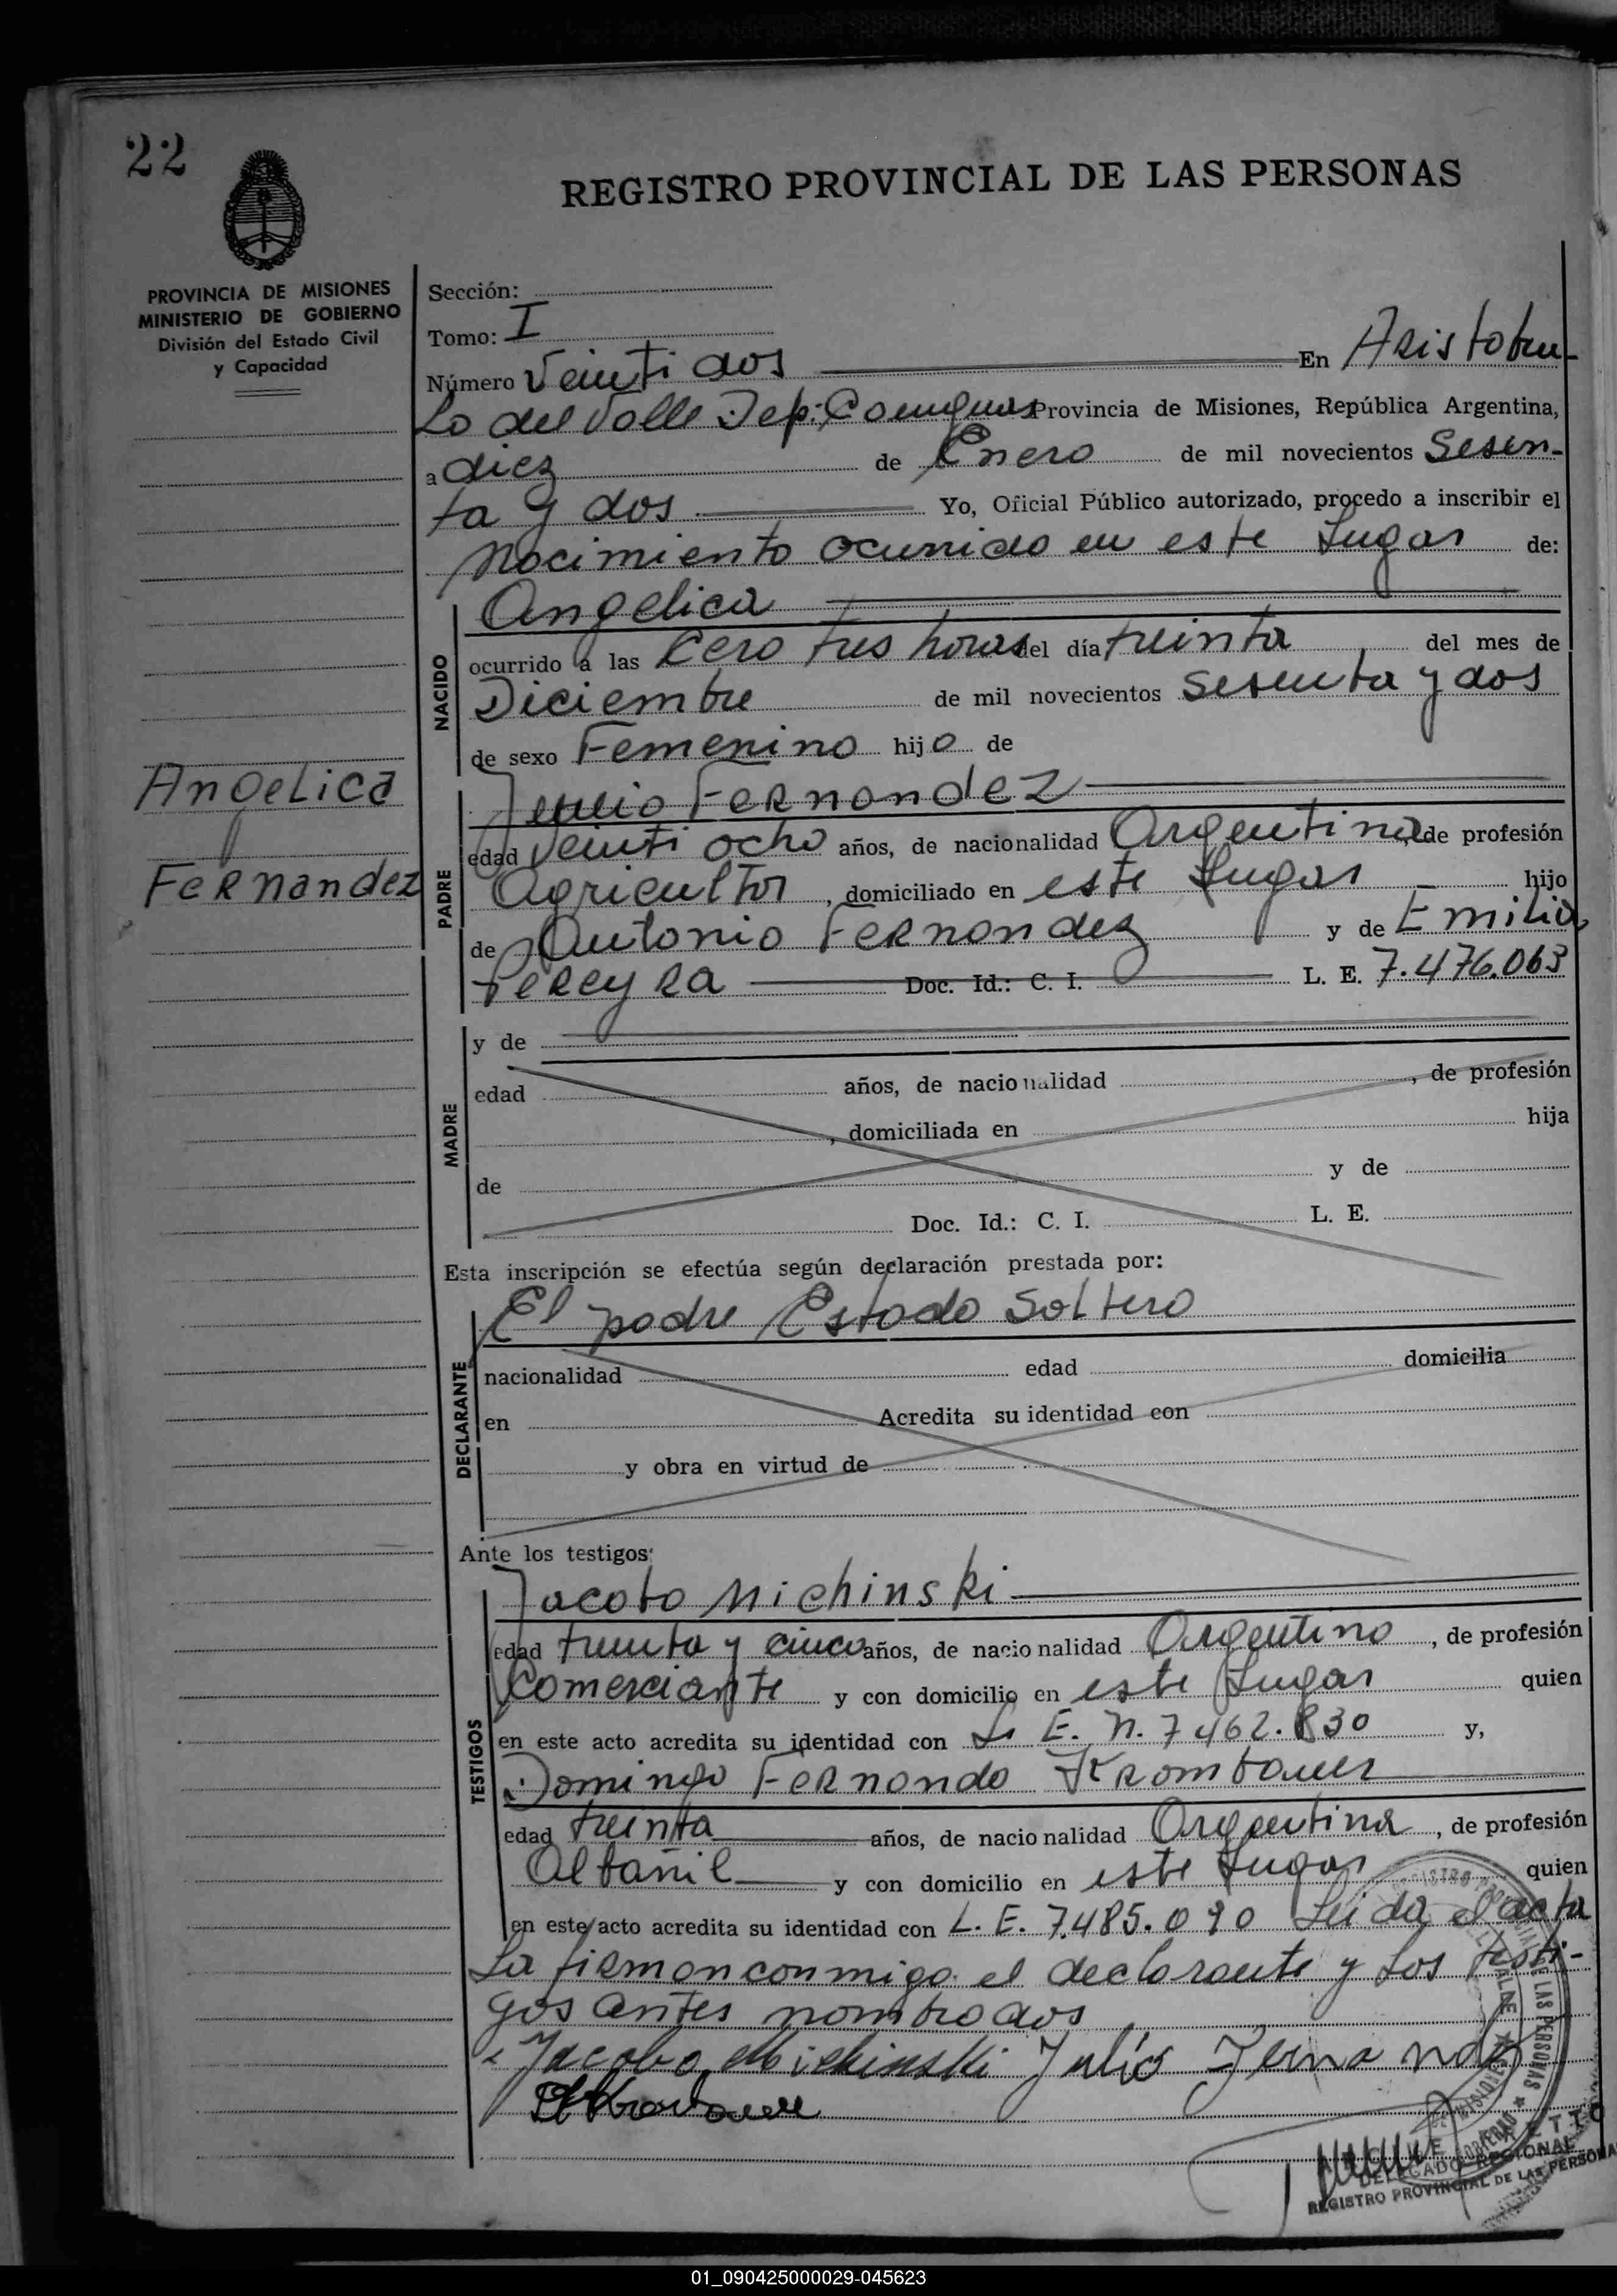 22
REGISTRO PROVINCIAL DE LAS PERSONAS
PROVINCIA DE MISIONES
MINISTERIO DE GOBIERNO
División del Estado Civil
y Capacidad
Sección:
Tomo: I
Número Veinti dos En Aristobu-
Lo del Valle Dep: Cainguas Provincia de Misiones, República Argentina,
a diez de Enero de mil novecientos Sesen-
ta y dos Yo, Oficial Público autorizado, procedo a inscribir el
Nacimiento ocurrido en este Lugar de:
Angelica
NACIDO
ocurrido a las Cero tres horas del día treinta del mes de
Diciembre de mil novecientos Sesenta y dos
de sexo Femenino hijo de
Angelica
Fernandez
PADRE
Julio Fernandez
edad Veinti ocho años, de nacionalidad Argentina, de profesión
Agricultor, domiciliado en este Lugar hijo
de Antonio Fernandez y de Emilia
Pereyra Doc. Id.: C. I. L. E. 7.476.063
MADRE
y de
edad años, de nacionalidad , de profesión
, domiciliada en hija
de y de
Doc. Id.: C. I. L. E.
Esta inscripción se efectúa según declaración prestada por:
DECLARANTE
El padre Estado Soltero
nacionalidad edad domicilia
en Acredita su identidad con
y obra en virtud de
Ante los testigos:
TESTIGOS
Jacobo Michinski
edad treinta y cinco años, de nacionalidad Argentino, de profesión
Comerciante y con domicilio en este Lugar quien
en este acto acredita su identidad con L. E. N. 7462.830 y,
Domingo Fernando Krombauer
edad treinta años, de nacionalidad Argentina, de profesión
Albañil y con domicilio en este Lugar quien
en este acto acredita su identidad con L. E. 7.485.090 Leida el acta
La firman conmigo el declarante y Los testi-
gos antes nombrados
Jacobo Michinski Julio Fernandez
DELEGADO REGIONAL
REGISTRO PROVINCIAL DE LAS PERSONAS
01_090425000029-045623